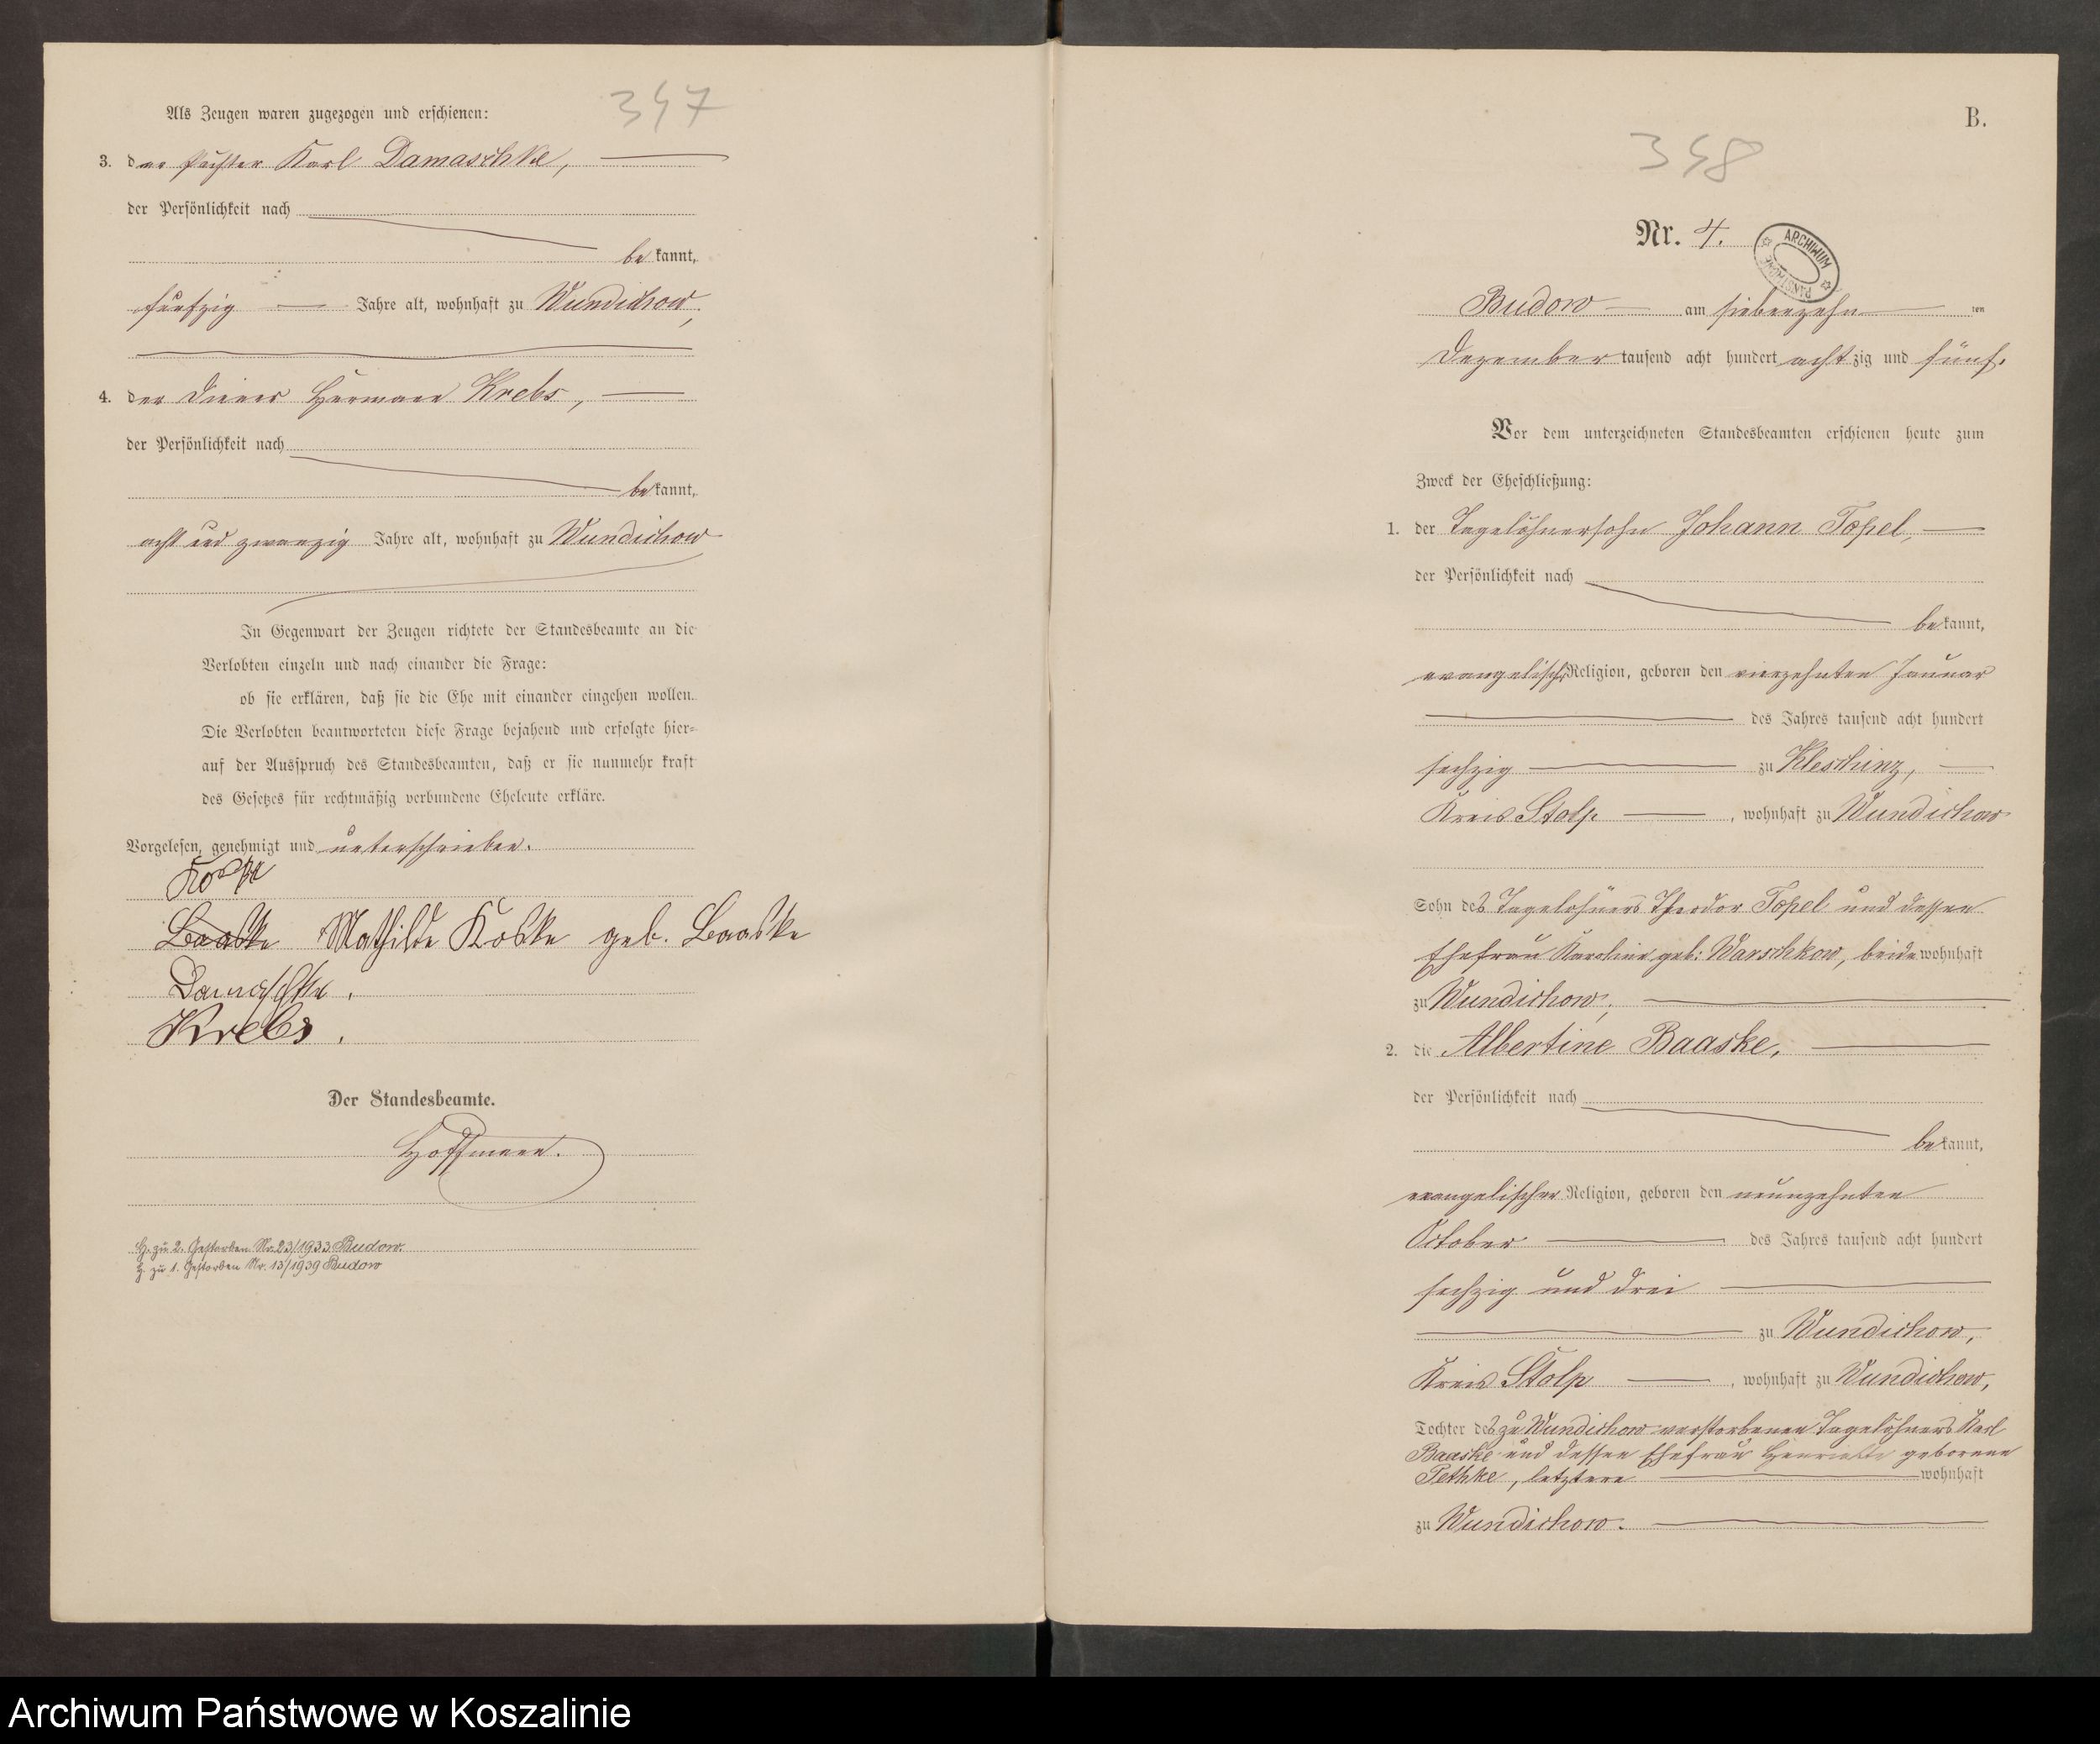 347
Als Zeugen waren zugezogen und erschienen:
3. der Pächter Karl Damaschke,
der Persönlichkeit nach
bekannt,
fünfzig Jahre alt, wohnhaft zu Wundichow,
4. der Diener Hermann Krebs,
der Persönlichkeit nach
bekannt,
acht und zwanzig Jahre alt, wohnhaft zu Wundichow
In Gegenwart der Zeugen richtete der Standesbeamte an die
Verlobten einzeln und nach einander die Frage:
ob sie erklären, daß sie die Ehe mit einander eingehen wollen.
Die Verlobten beantworteten diese Frage bejahend und erfolgte hier=
auf der Ausspruch des Standesbeamten, daß er sie nunmehr kraft
des Gesetzes für rechtmäßig verbundene Eheleute erkläre.
Vorgelesen, genehmigt und unterschrieben.
Koske
Baaske Mathilde Koske geb. Baaske
Damaschke.
Krebs.
Der Standesbeamte.
Hoffmann.
H. zu 2. Gestorben Nr. 23/1933 Budow.
H. zu 1. Gestorben Nr. 13/1939 Budow
B.
348
Nr. 4.
ARCHIWUM PAŃSTWOWE
Budow am siebenzehn ten
Dezember tausend acht hundert achtzig und fünf.
Vor dem unterzeichneten Standesbeamten erschienen heute zum
Zweck der Eheschließung:
1. der Tagelöhnersohn Johann Topel,
der Persönlichkeit nach
bekannt,
evangelischer Religion, geboren den vierzehnten Januar
des Jahres tausend acht hundert
sechzig zu Kleschinz,
Kreis Stolp, wohnhaft zu Wundichow
Sohn des Tagelöhners Theodor Topel und dessen
Ehefrau Karoline geb: Warschkow, beide wohnhaft
zu Wundichow,
2. die Albertine Baaske,
der Persönlichkeit nach
bekannt,
evangelischer Religion, geboren den neunzehnten
October des Jahres tausend acht hundert
sechzig und drei
zu Wundichow,
Kreis Stolp, wohnhaft zu Wundichow,
Tochter des zu Wundichow verstorbenen Tagelöhners Karl
Baaske und dessen Ehefrau Henriette geborene
Pethke, letztere wohnhaft
zu Wundichow.
Archiwum Państwowe w Koszalinie